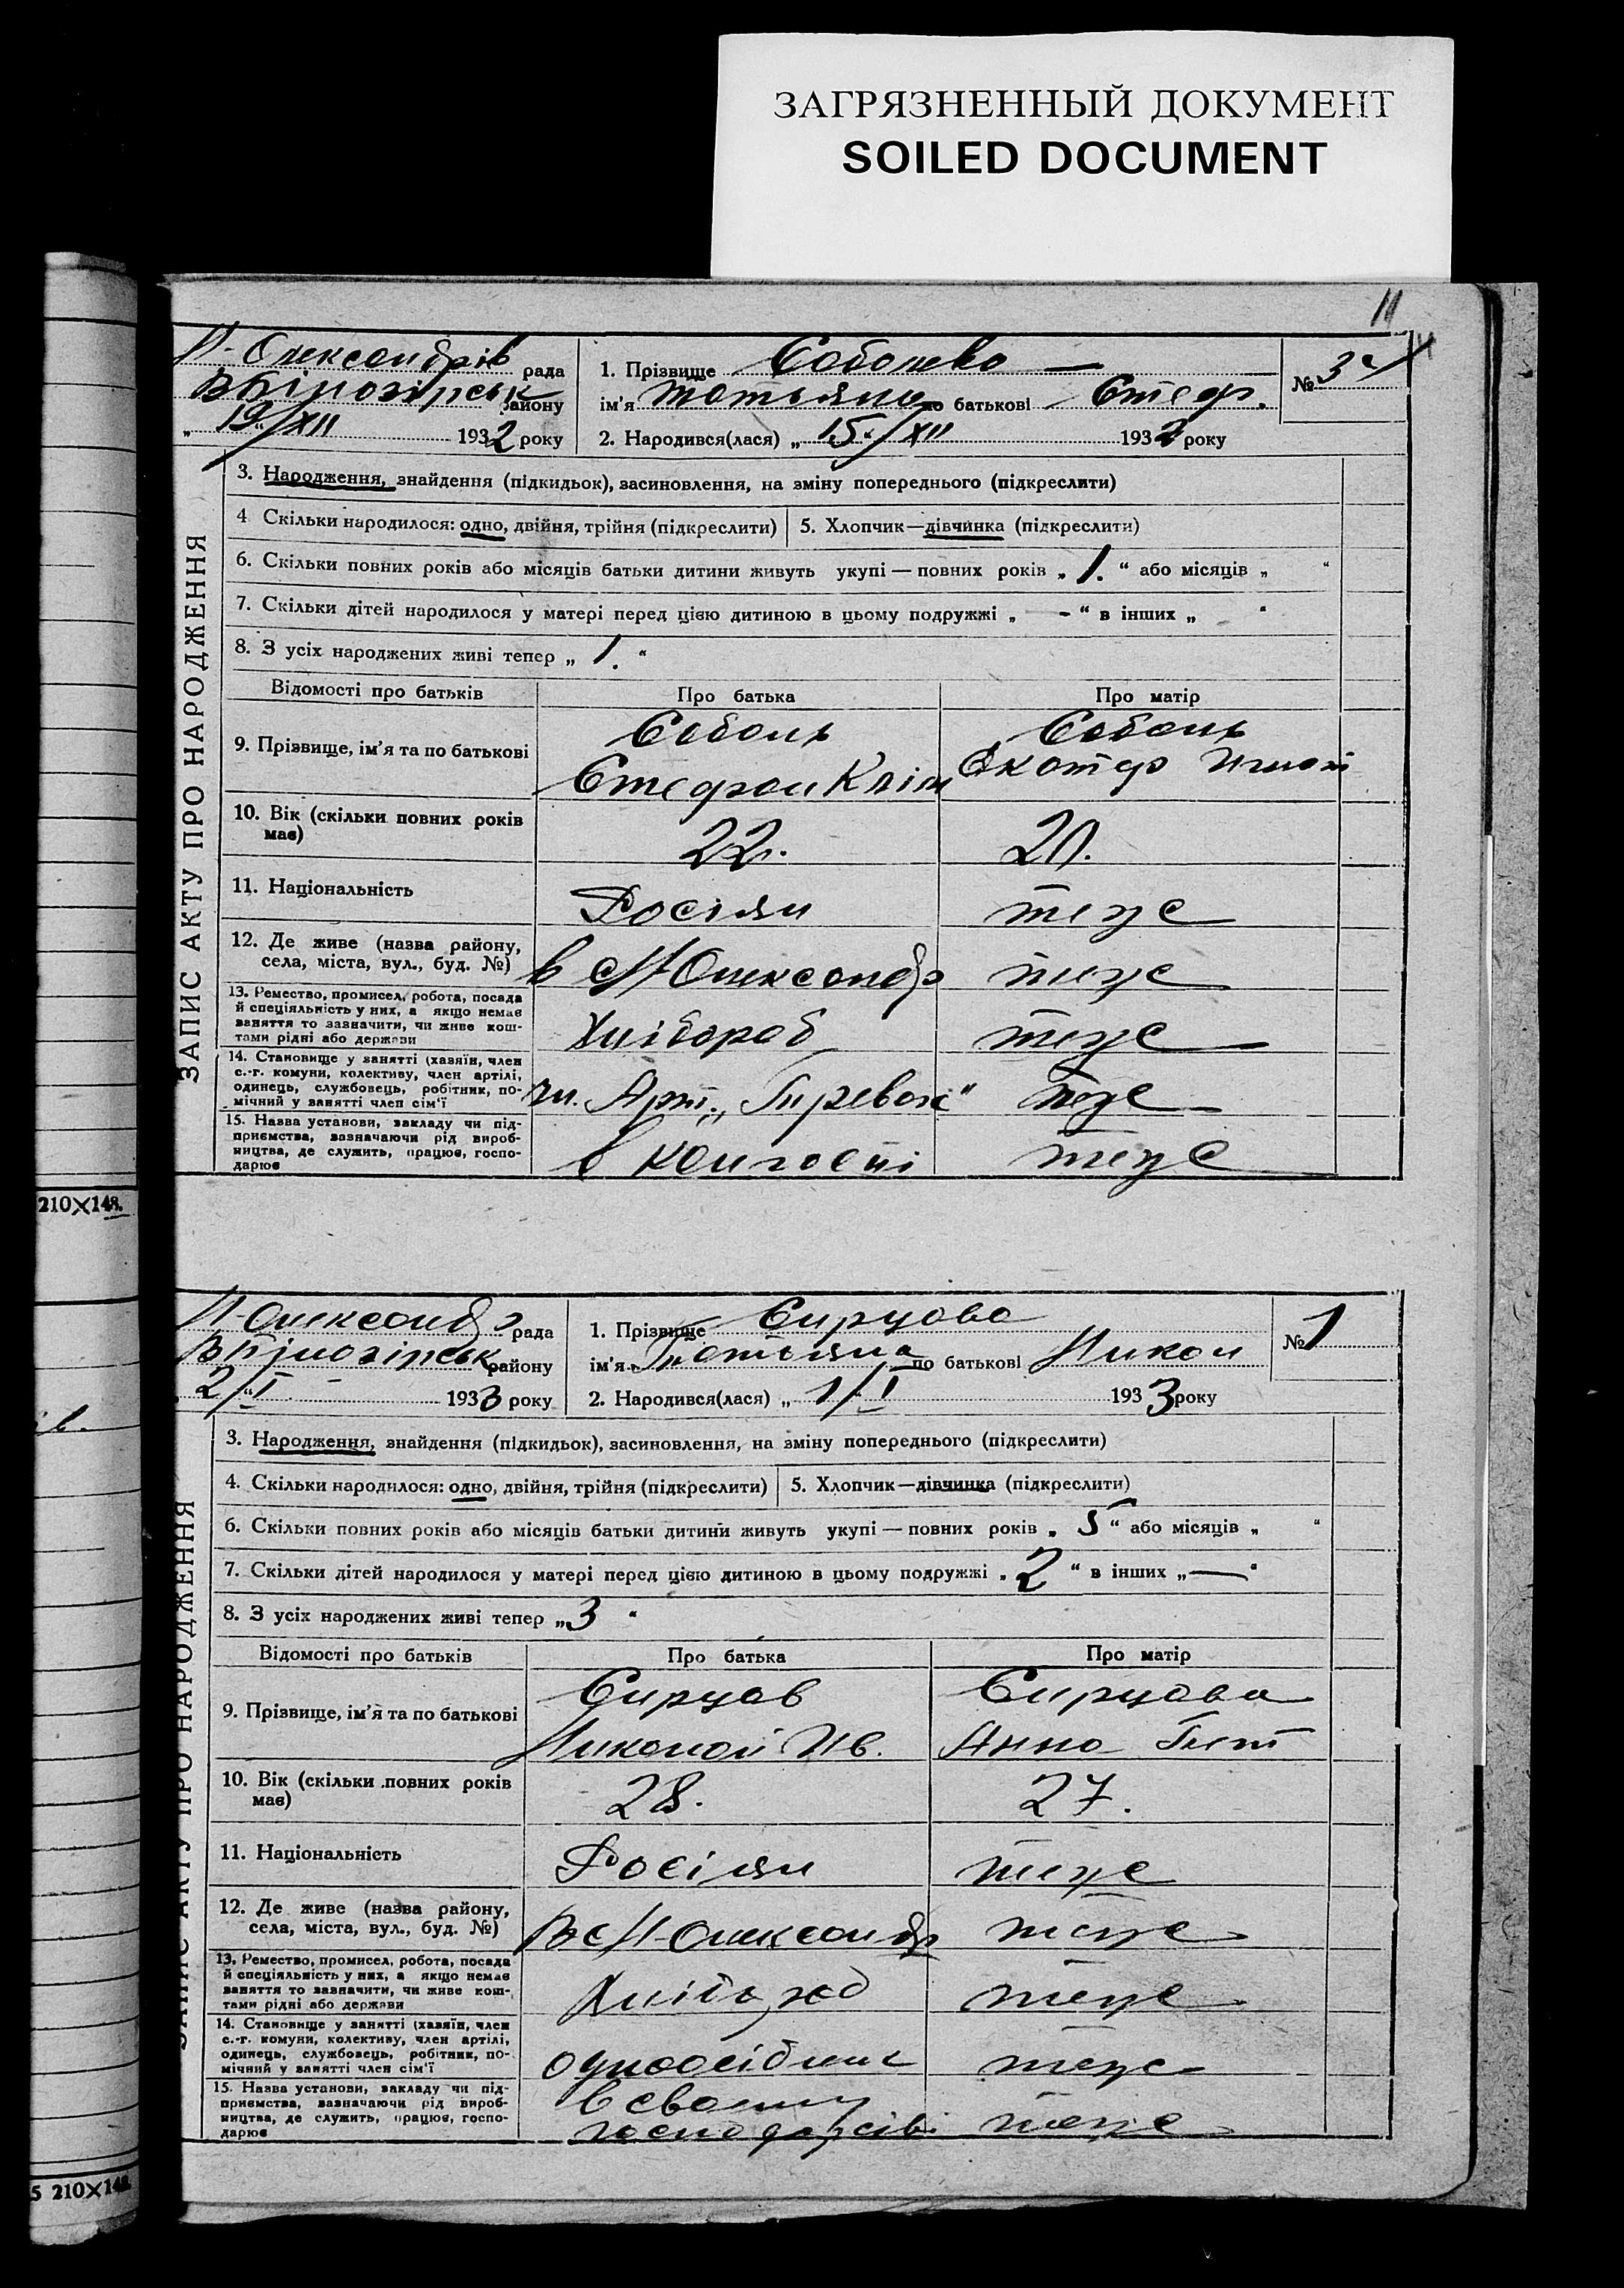 ЗАГРЯЗНЕННЫЙ ДОКУМЕНТ
SOILED DOCUMENT
11
Н-Олександрів рада
ВБілозірськ району
„ 19/XII 1932 року
1. Прізвище Соболева
ім'я Татьяна по батькові Стеф.
2. Народився(лася) „ 15/XII 1932 року
№ 34
ЗАПИС АКТУ ПРО НАРОДЖЕННЯ
3. Народження, знайдення (підкидьок), засиновлення, на зміну попереднього (підкреслити)
4 Скільки народилося: одно, двійня, трійня (підкреслити) 5. Хлопчик—дівчинка (підкреслити)
6. Скільки повних років або місяців батьки дитини живуть укупі — повних років „ 1. “ або місяців „ “
7. Скільки дітей народилося у матері перед цією дитиною в цьому подружжі „ - “ в інших „ “
8. З усіх народжених живі тепер „ 1. “
Відомості про батьків Про батька Про матір
9. Прізвище, ім'я та по батькові
Соболь Соболь
Стефан Клім Екатер Игнат
10. Вік (скільки повних років має) 22. 20.
11. Національність Росіян теже
12. Де живе (назва району, села, міста, вул., буд. №) в с Н Олександр теже
13. Ремество, промисел, робота, посада
й спеціяльність у них, а якщо немає
заняття то зазначити, чи живе кош-
тами рідні або держави
Хлібороб теже
14. Становище у занятті (хазяїн, член
с.-г. комуни, колективу, член артілі,
одинець, службовець, робітник, по-
мічний у занятті член сім'ї
чл. Арт. теже
15. Назва установи, закладу чи під-
приємства, зазначаючи рід вироб-
ництва, де служить, працює, госпо-
дарює
в колгоспі теже
210×148.
Н-Олександр рада
ВБілозірськ району
„ 2/I 1933 року
1. Прізвище Сирцова
ім'я Татьяна по батькові Никол
2. Народився(лася) „ 1/I 1933 року
№ 1
ЗАПИС АКТУ ПРО НАРОДЖЕННЯ
3. Народження, знайдення (підкидьок), засиновлення, на зміну попереднього (підкреслити)
4. Скільки народилося: одно, двійня, трійня (підкреслити) 5. Хлопчик—дівчинка (підкреслити)
6. Скільки повних років або місяців батьки дитини живуть укупі — повних років „ 5 “ або місяців „ “
7. Скільки дітей народилося у матері перед цією дитиною в цьому подружжі „ 2 “ в інших „ — “
8. З усіх народжених живі тепер „ 3 “
Відомості про батьків Про батька Про матір
9. Прізвище, ім'я та по батькові
Сирцов Сирцова
Николай Ив. Анна
10. Вік (скільки повних років має) 28. 27.
11. Національність Росіян теже
12. Де живе (назва району, села, міста, вул., буд. №) В с Н-Олександр теже
13. Ремество, промисел, робота, посада
й спеціяльність у них, а якщо немає
заняття то зазначити, чи живе кош-
тами рідні або держави
Хлібороб теже
14. Становище у занятті (хазяїн, член
с.-г. комуни, колективу, член артілі,
одинець, службовець, робітник, по-
мічний у занятті член сім'ї
одноосібник теже
15. Назва установи, закладу чи під-
приємства, зазначаючи рід вироб-
ництва, де служить, працює, госпо-
дарює
в своему
господарстві теже
5 210×148.